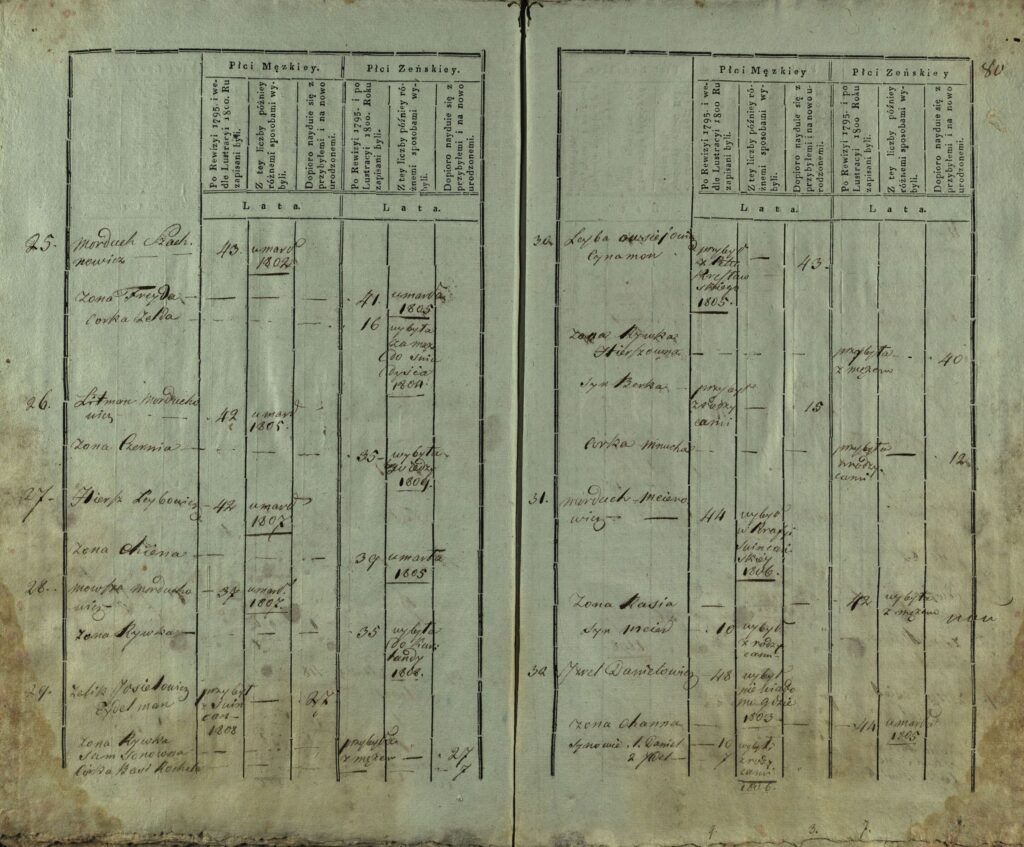 Płci Męzkiey.
Płci Zeńskiey.
Po Rewizyi 1795. i we-
dle Lustracyi 1800. Ru
zapisani byli.
Z tey liczby później
różnemi sposobami wy-
byli.
Dopioro nayduie się z
przybyłemi i na nowo
urodzonemi.
Po Rewizyi 1795. i po
Lustracyi 1800. Roku
zapisani byli.
Z tey liczby później ró-
żnemi sposobami wy-
byli.
Dopioro nayduie się z
przybyłemi i na nowo
urodzonemi.
Lata.
Lata.
25. Morduch Szach-
nowicz 43. umarł
1802.
Zona Freyda 41. umarła
1805
Corka Zelda 16 wybyła
za mąż
do
1804.
26. Litman Morducho
wicz 42 umarł
1805.
Zona Czernia 35 wybyła
1809
27. Hiersz Leybowicz 42 umarł
1807.
Zona Chiena 39 umarła
1805
28. Mowsza Morducho
wicz 37 umarł
1807.
Zona Rywka 35 wybyła
do Kur
landyi
1808.
29. Zelik Josielowicz przybył 27
Zydelman
1808
Zona Rywka przybyła
z mężem 27
Corka Basi Rochela 7
80
Płci Męzkiey
Płci Zeńskiey
Po Rewizyi 1795. i we-
dle Lustracyi 1800 Ru
zapisani byli.
Z tey liczby później ró-
żnemi sposobami wy-
byli.
Dopioro nayduie się z
przybyłemi i na nowo u-
rodzonemi.
Po Rewizyi 1795. i po
Lustracyi 1800 Roku
zapisani byli.
Z tey liczby później
różnemi sposobami wy-
byli.
Dopioro nayduie się z
przybyłemi i na nowo
urodzonemi.
Lata.
Lata.
30. Leyba Owsiejowicz przybył 43.
Cynamon
1805.
Zona Rywka
Hierszowna przybyła 40
z mężem
Syn Berka przybył 15
z rodzy
cami
Corka Mnucha przybyła 12.
z rodzy
cami
31. Morduch Meiero
wicz 44 wybył
1806.
Zona Rasia 42 wybyła
z mężem
Syn Meier 10 wybył
z rodzy
cami
32. Izrel Danielowicz 48 wybył
niewiado
mo gdzie
1803
Zona Channa 44 umarła
1805
Synowie 1. Daniel 10 wybyli
2 7 z rodzy
cami
1806.
9. 3. 7.